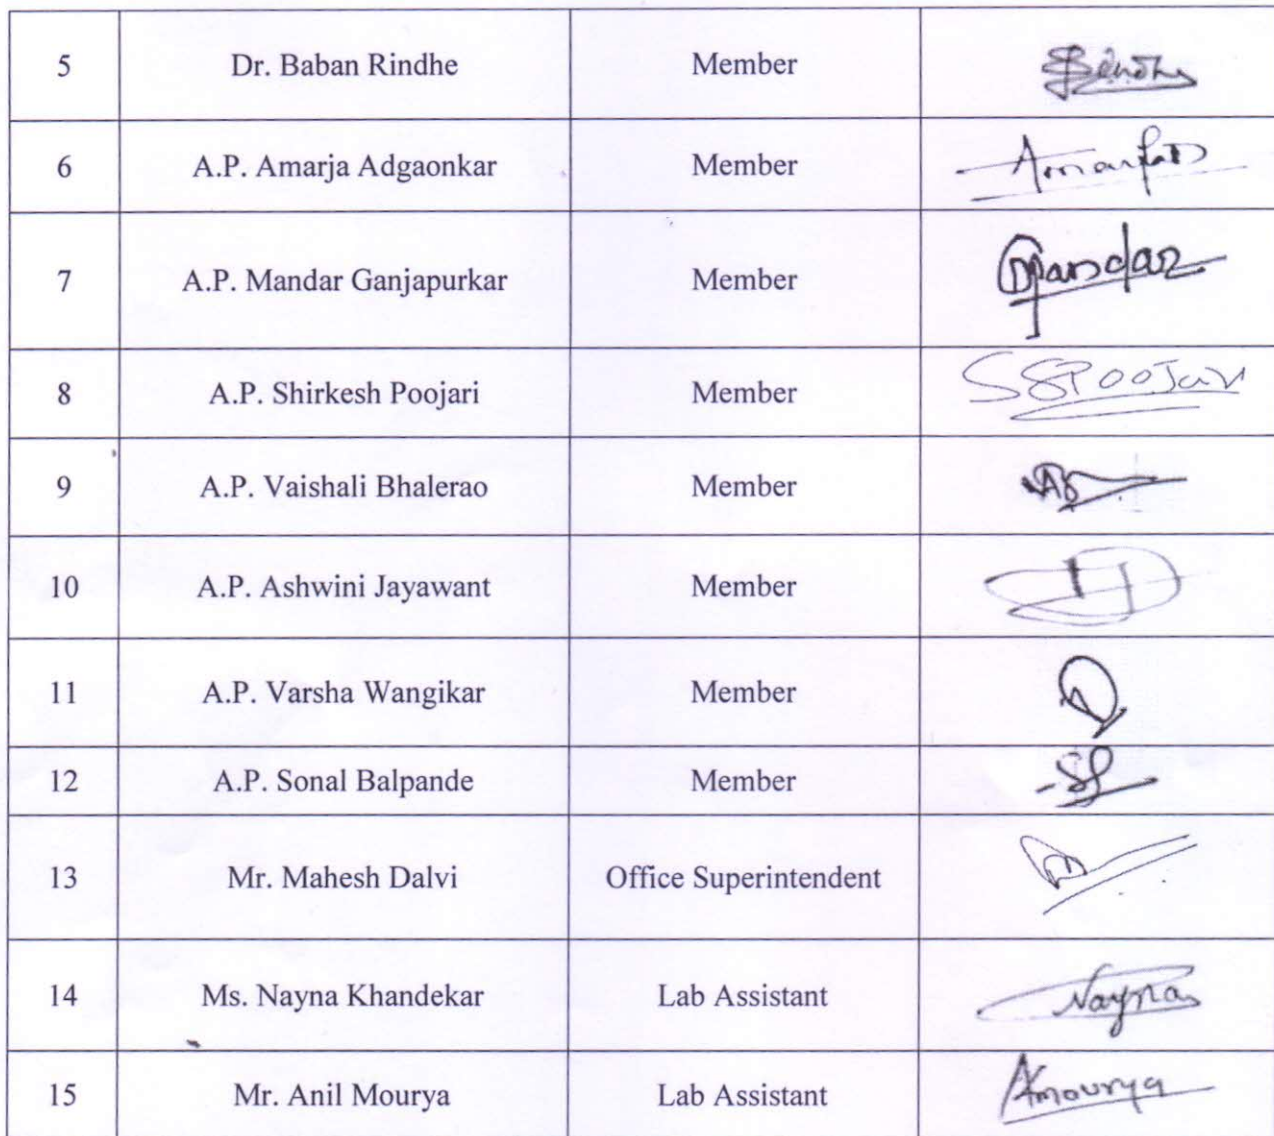 5 Dr. Baban Rindhe Member
6 A.P. Amarja Adgaonkar Member
7 A.P. Mandar Ganjapurkar Member Mandar
8 A.P. Shirkesh Poojari Member SSPoojari
9 A.P. Vaishali Bhalerao Member
10 A.P. Ashwini Jayawant Member
11 A.P. Varsha Wangikar Member
12 A.P. Sonal Balpande Member
13 Mr. Mahesh Dalvi Office Superintendent
14 Ms. Nayna Khandekar Lab Assistant Nayna
15 Mr. Anil Mourya Lab Assistant Amourya